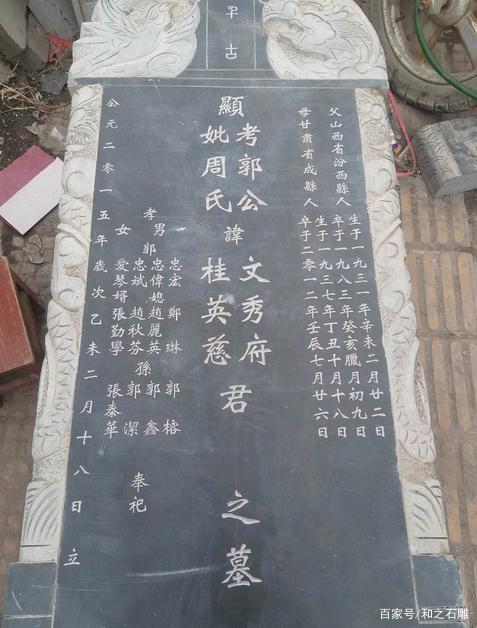 古
父山西省汾西縣人
生于一九三一年辛未二月廿二日
卒于一九八三年癸亥臘月初九日
母甘肅省成縣人
生于一九三七年丁丑十月十八日
卒于二零一二年壬辰七月廿六日
顯
考郭公
妣周氏
諱
文秀府
桂英慈
君
之墓
忠宏 鄭琳 郭榕
孝男郭忠偉媳趙麗英孫郭鑫
忠斌 趙秋芬 郭潔
女愛琴婿張勤學 張泰華
奉祀
公元二零一五年歲次乙未二月十八日立
百家号/和之石雕